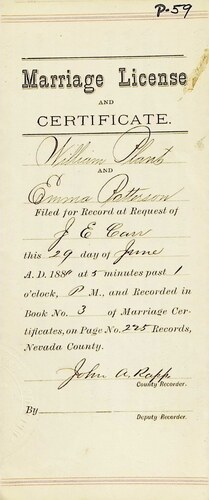 P-59
Marriage License
AND
CERTIFICATE.
William Plants
AND
Emma Patterson
Filed for Record at Request of
J E Carr
this 29 day of June
A. D. 188 at 5 minutes past 1
o'clock, P M., and Recorded in
Book No. 3 of Marriage Cer-
tificates, on Page No. 225 Records,
Nevada County.
John A. Rapp
County Recorder.
By
Deputy Recorder.